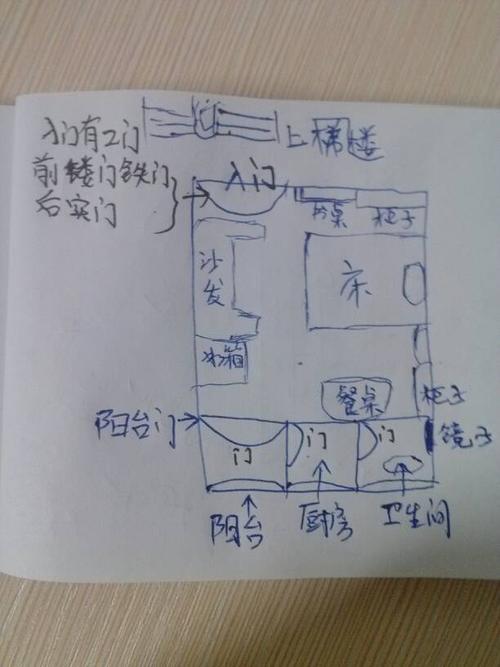 上梯楼
入门有2门
前镂门铁门
后实门
入门
柜子
沙发
床
冰箱
餐桌
柜子
阳台门
门
门
门
镜子
阳台
厨房
卫生间